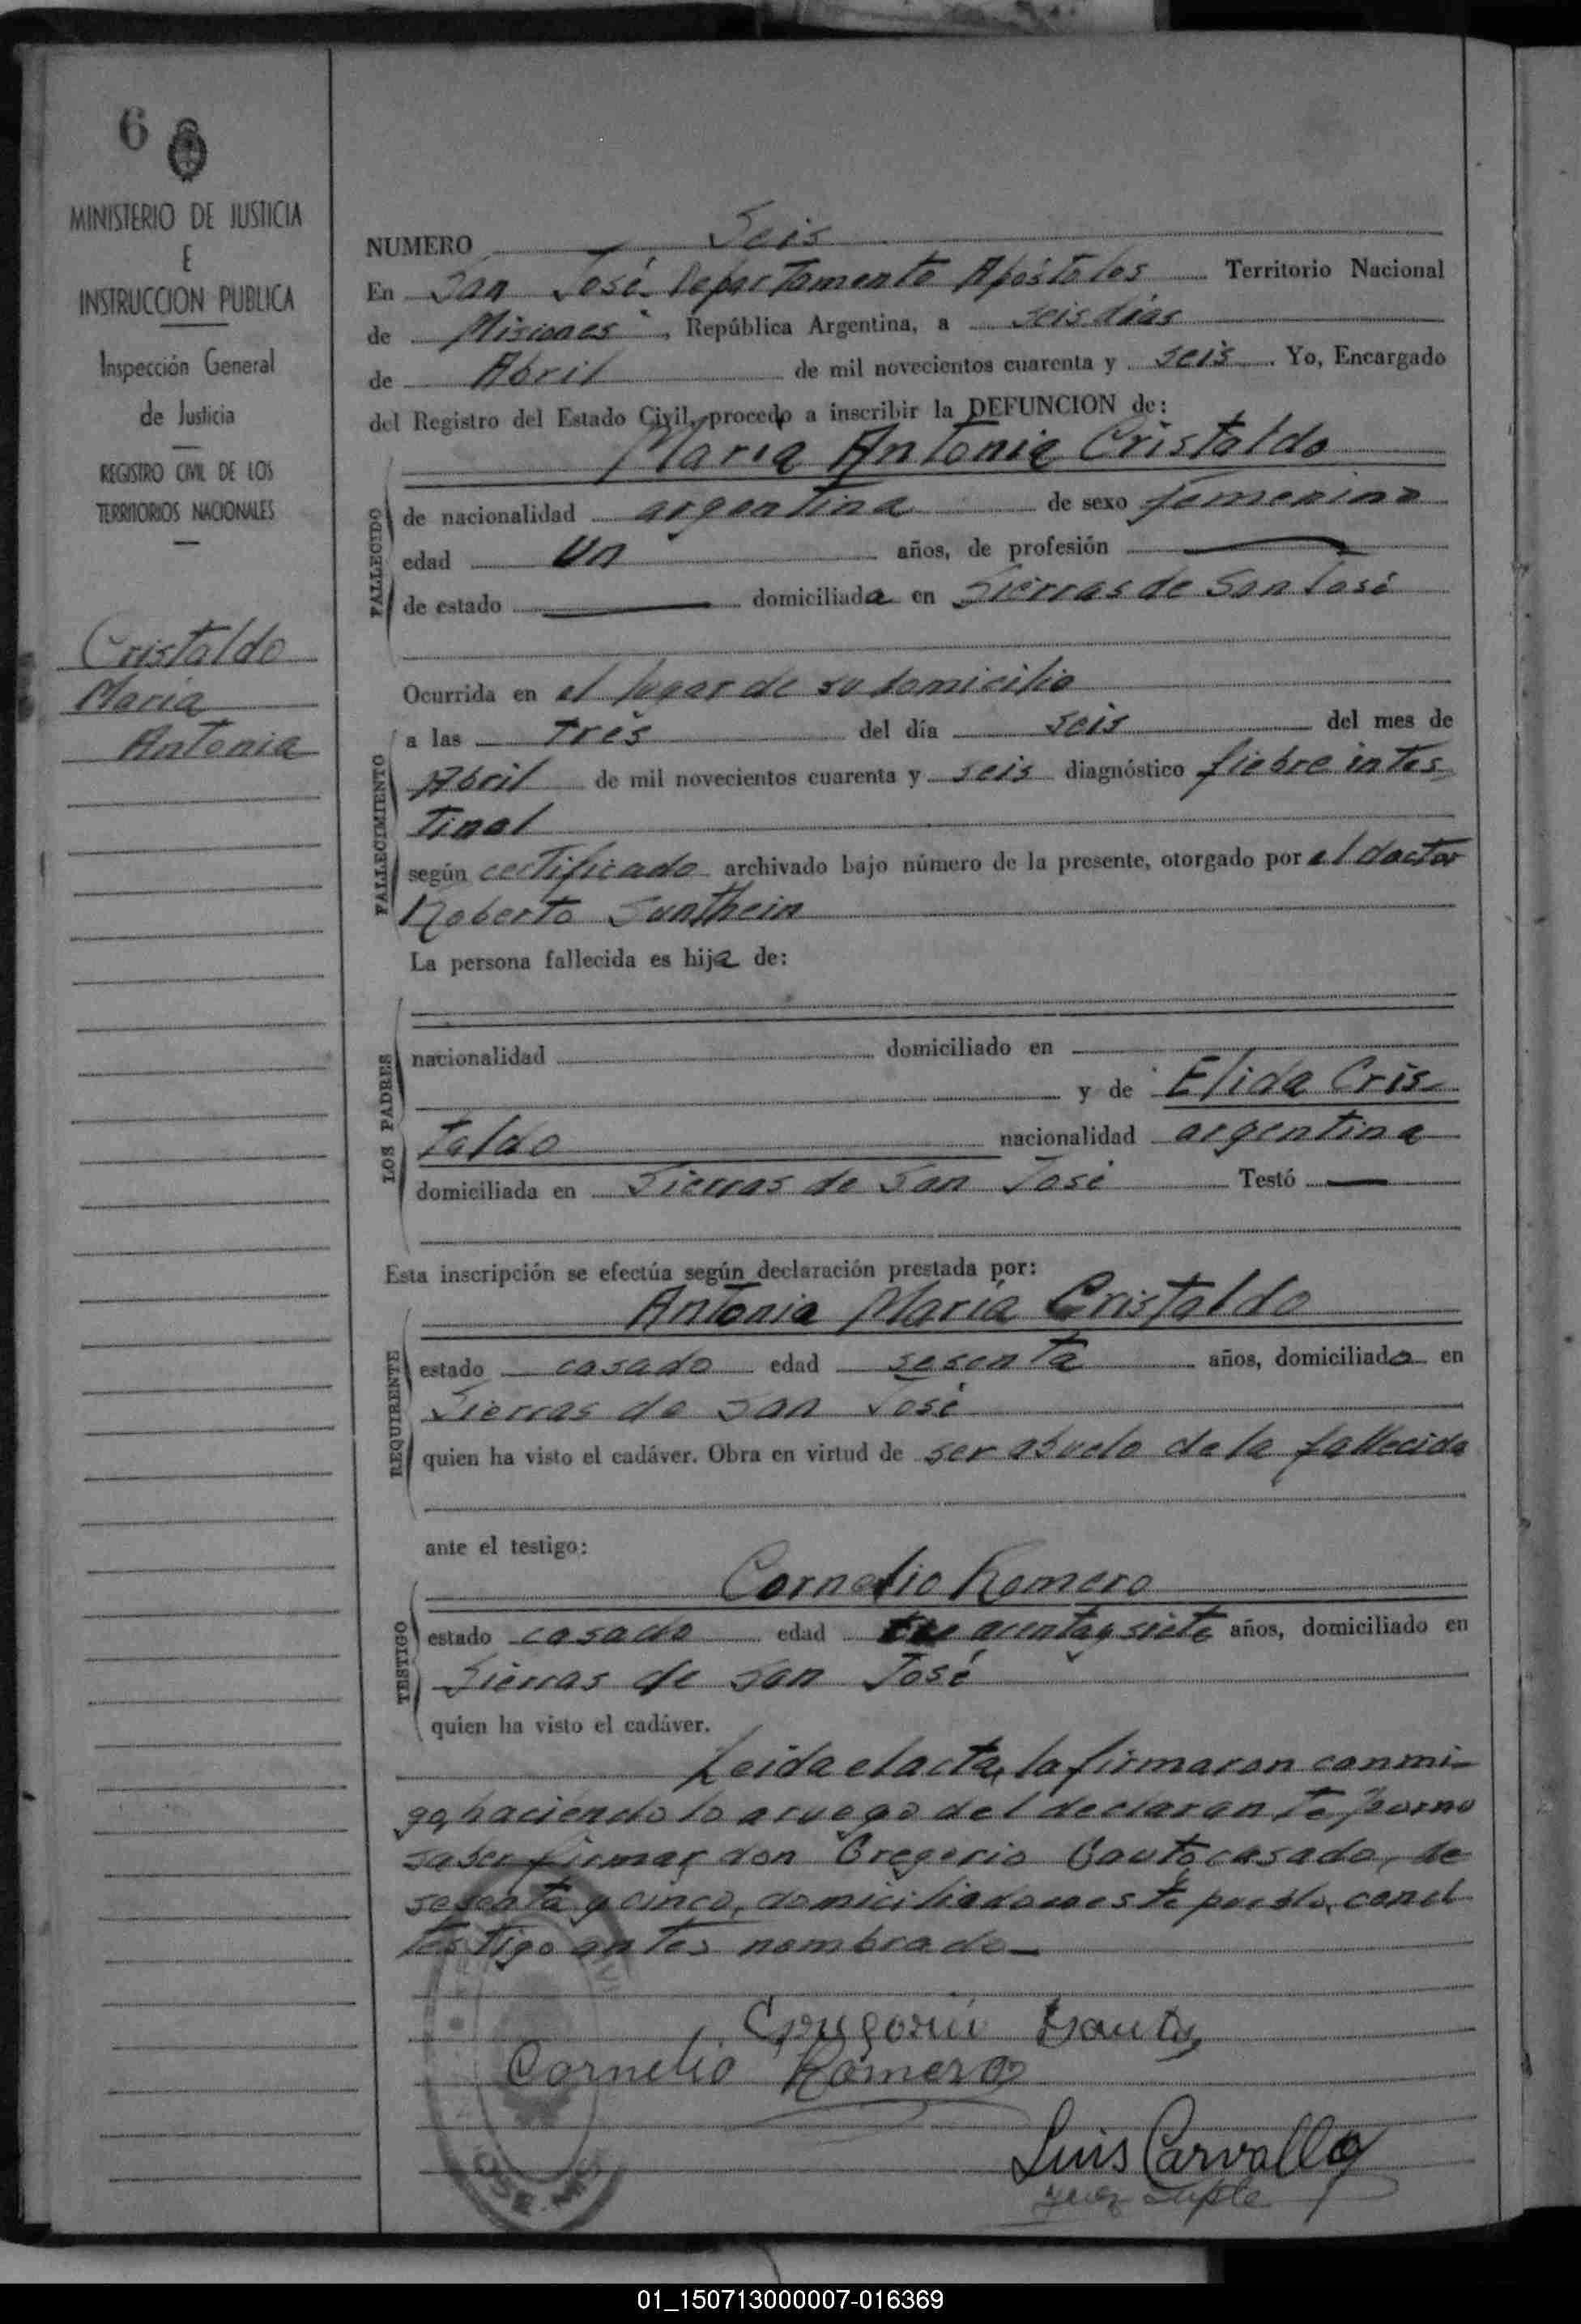 6
MINISTERIO DE JUSTICIA
E
INSTRUCCION PUBLICA
Inspección General
de Justicia
REGISTRO CIVIL DE LOS
TERRITORIOS NACIONALES
Cristaldo
Maria
Antonia
NUMERO Seis
En San José Departamento Apóstoles Territorio Nacional
de Misiones, República Argentina, a seis dias
de Abril de mil novecientos cuarenta y seis. Yo, Encargado
del Registro del Estado Civil, procedo a inscribir la DEFUNCION de:
Maria Antonia Cristaldo
FALLECIDO
de nacionalidad argentina de sexo femenino
edad un años, de profesión —
de estado — domiciliada en Sierras de San José
FALLECIMIENTO
Ocurrida en el lugar de su domicilio
a las tres del día seis del mes de
Abril de mil novecientos cuarenta y seis diagnóstico fiebre intes
tinal
según certificado archivado bajo número de la presente, otorgado por el doctor
Roberto Sunthein
La persona fallecida es hija de:
LOS PADRES
nacionalidad domiciliado en
y de Elida Cris-
taldo nacionalidad argentina
domiciliada en Sierras de San José Testó —
Esta inscripción se efectúa según declaración prestada por:
Antonia María Cristaldo
REQUIRENTE
estado casado edad sesenta años, domiciliado en
Sierras de San José
quien ha visto el cadáver. Obra en virtud de ser abuelo de la fallecida
ante el testigo:
Cornelio Romero
TESTIGO
estado casado edad arenta y siete años, domiciliado en
Sierras de San José
quien ha visto el cadáver.
Leida el acta, la firmaron conmi-
go, haciendolo a ruego del declarante por no
saber firmar don Gregorio Gauto, casado, de
sesenta y cinco, domiciliado en este pueblo, con el
testigo antes nombrado—
Gregorio Gauto
Cornelio Romero
Luis Carvallo
Juez Suple
01_150713000007-016369